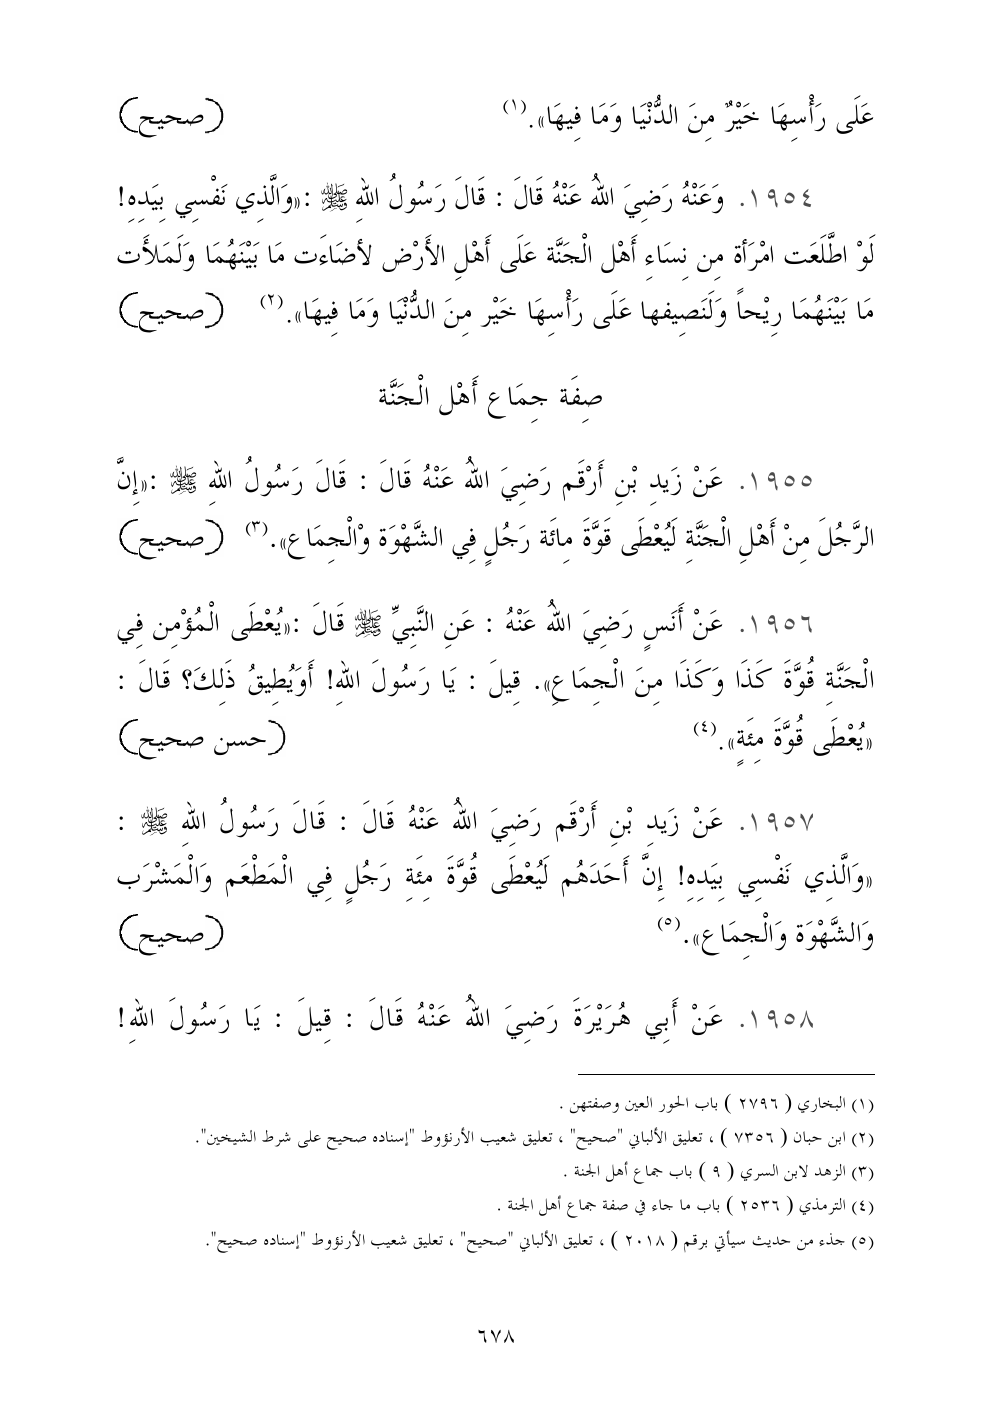 عَلَى رَأْسِهَا خَيْرٌ مِنَ الدُّنْيَا وَمَا فِيهَا». (١) (صحيح)
١٩٥٤. وَعَنْهُ رَضِيَ اللهُ عَنْهُ قَالَ : قَالَ رَسُولُ اللهِ ﷺ :«وَالَّذِي نَفْسِي بِيَدِهِ!
لَوْ اطَّلَعَت امْرَأة مِن نِسَاءِ أَهْلِ الْجَنَّة عَلَى أَهْلِ الأَرْض لأضَاءَت مَا بَيْنَهُمَا وَلَمَلأَت
مَا بَيْنَهُمَا رِيْحاً وَلَنَصِيفها عَلَى رَأْسِهَا خَيْر مِنَ الدُّنْيَا وَمَا فِيهَا». (٢) (صحيح)
صِفَة جِمَاع أَهْل الْجَنَّة
١٩٥٥. عَنْ زَيدِ بْنِ أَرْقَم رَضِيَ اللهُ عَنْهُ قَالَ : قَالَ رَسُولُ اللهِ ﷺ :«إِنَّ
الرَّجُلَ مِنْ أَهْلِ الْجَنَّةِ لَيُعْطَى قَوَّةَ مِائَة رَجُلٍ فِي الشَّهْوَة وْالْجِمَاع». (٣) (صحيح)
١٩٥٦. عَنْ أَنَسٍ رَضِيَ اللهُ عَنْهُ : عَنِ النَّبِيِّ ﷺ قَالَ :«يُعْطَى الْمُؤْمِن فِي
الْجَنَّةِ قُوَّةَ كَذَا وَكَذَا مِنَ الْجِمَاعِ». قِيلَ : يَا رَسُولَ اللهِ! أَوَيُطِيقُ ذَلِكَ؟ قَالَ :
«يُعْطَى قُوَّةَ مِئَةٍ». (٤) (حسن صحيح)
١٩٥٧. عَنْ زَيدِ بْنِ أَرْقَم رَضِيَ اللهُ عَنْهُ قَالَ : قَالَ رَسُولُ اللهِ ﷺ :
«وَالَّذِي نَفْسِي بِيَدِهِ! إِنَّ أَحَدَهُم لَيُعْطَى قُوَّةَ مِئَةِ رَجُلٍ فِي الْمَطْعَم وَالْمَشْرَب
وَالشَّهْوَة وَالْجِمَاع». (٥) (صحيح)
١٩٥٨. عَنْ أَبِي هُرَيْرَةَ رَضِيَ اللهُ عَنْهُ قَالَ : قِيلَ : يَا رَسُولَ اللهِ!
(١) البخاري ( ٢٧٩٦ ) باب الحور العين وصفتهن .
(٢) ابن حبان ( ٧٣٥٦ ) ، تعليق الألباني "صحيح" ، تعليق شعيب الأرنؤوط "إسناده صحيح على شرط الشيخين".
(٣) الزهد لابن السري ( ٩ ) باب جماع أهل الجنة .
(٤) الترمذي ( ٢٥٣٦ ) باب ما جاء في صفة جماع أهل الجنة .
(٥) جذء من حديث سيأتي برقم ( ٢٠١٨ ) ، تعليق الألباني "صحيح" ، تعليق شعيب الأرنؤوط "إسناده صحيح".
٦٧٨